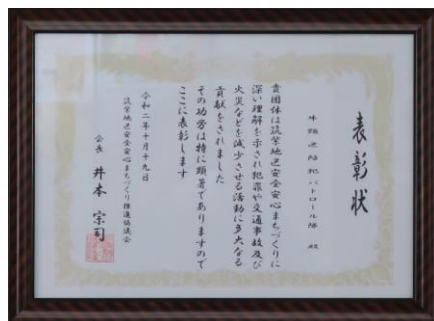 表彰状
防犯パトロール隊 殿
貴団体は筑紫地区安全安心まちづくりに
深い理解を示され犯罪や交通事故及び
火災などを減少させる活動に多大なる
貢献をされました
その功労は特に顕著でありますので
ここに表彰します
令和二年十月十九日
筑紫地区安全安心まちづくり推進協議会
会長 井本宗司